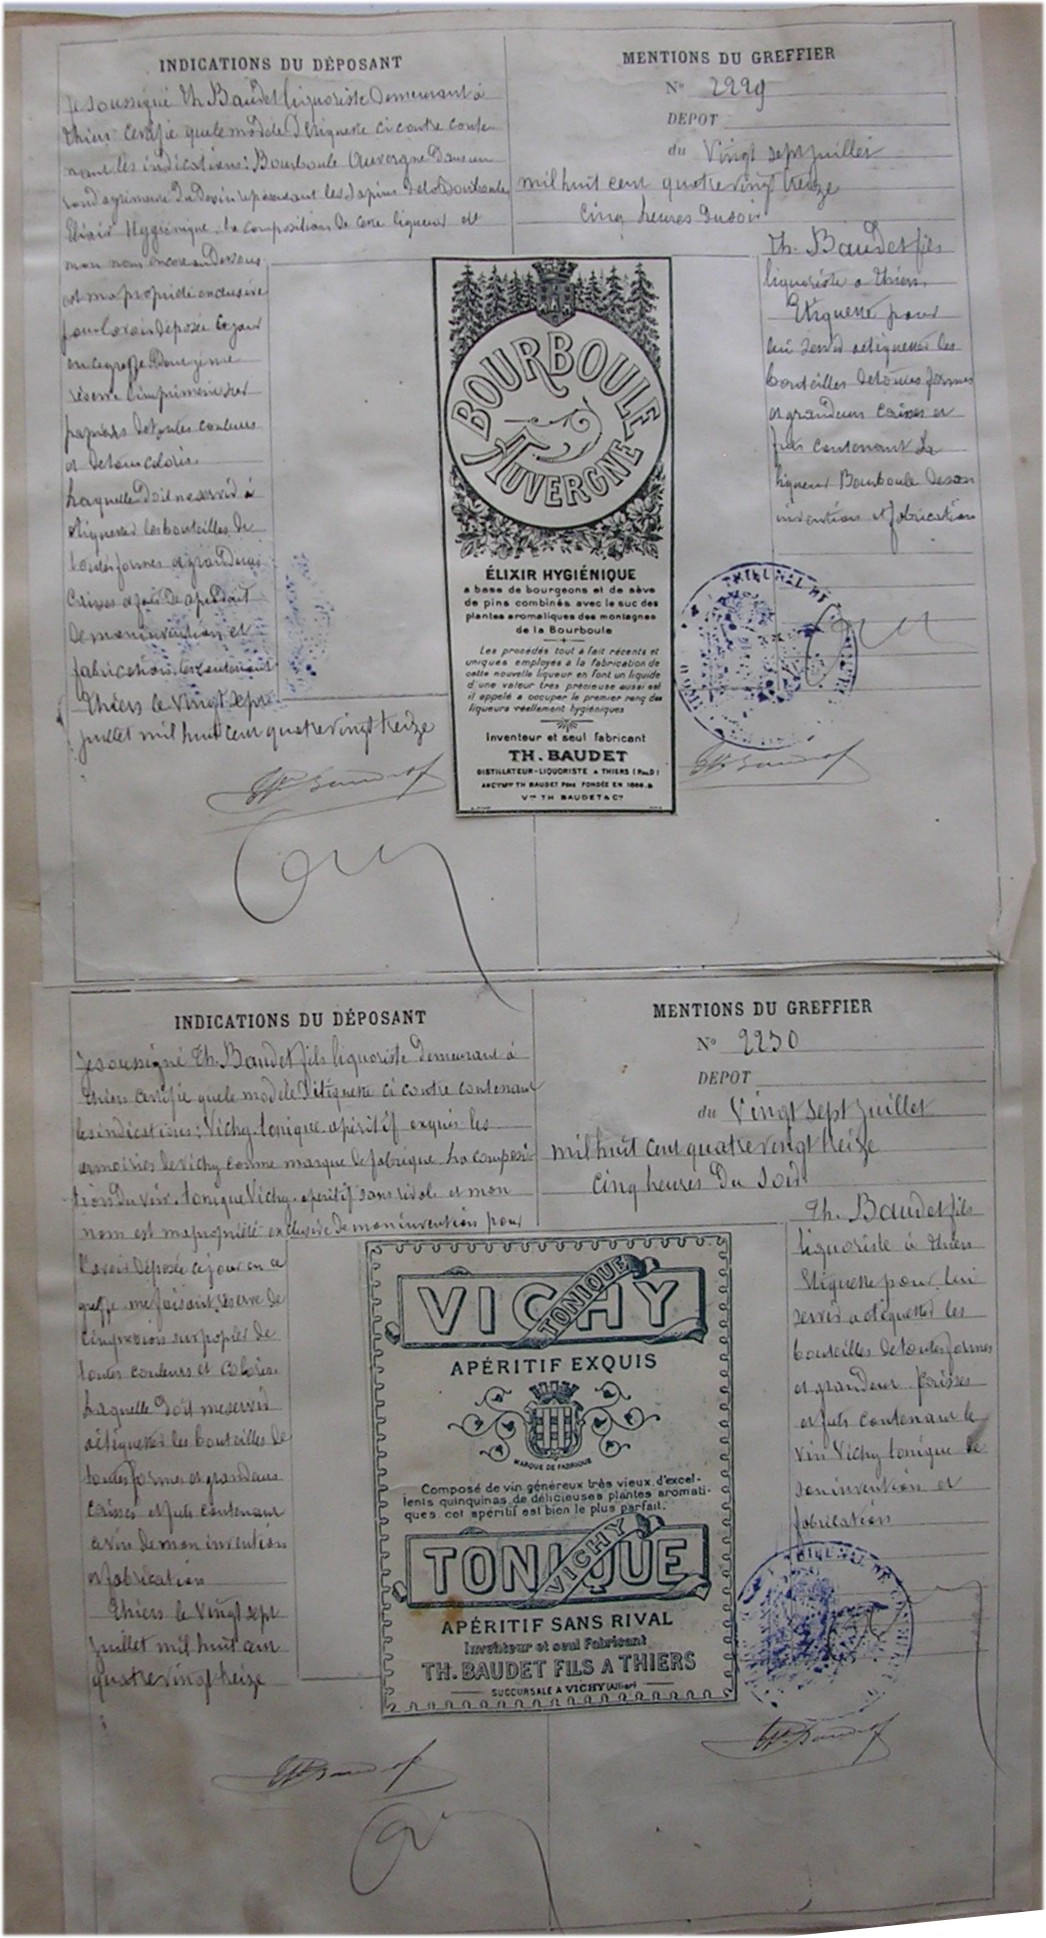 INDICATIONS DU DÉPOSANT
Je soussigné Th. Baudet liquoriste demeurant à
Thiers certifie que le modèle d'étiquette ci contre conte-
nant les indications: Bourboule Auvergne dans un
rond agrémenté du dessin représentant les sapins de la Bourboule
Elixir Hygiénique. la composition de cette liqueur et
mon nom encore au dessous
est ma propriété exclusive
pour l'avoir déposée ce jour
en ce greffe
réserve l'imprimerie sur
papiers de toutes couleurs
et de tous coloris.
Laquelle doit me servir à
étiqueter les bouteilles de
toutes formes et grandeurs
caisses et futs
de mon invention et
fabrication les contenant
Thiers le vingt sept
juillet mil huit cent quatre vingt treize
MENTIONS DU GREFFIER
N° 2229
DEPOT
du vingt sept juillet
mil huit cent quatre vingt treize
cinq heures du soir
Th. Baudet fils
liquoriste à Thiers.
Etiquette pour
lui servir à étiqueter les
bouteilles de toutes formes
et grandeurs caisses et
futs contenant la
liqueur Bourboule de son
invention et fabrication
BOURBOULE
AUVERGNE
ÉLIXIR HYGIÉNIQUE
a base de bourgeons et de sève
de pins combinés avec le suc des
plantes aromatiques des montagnes
de la Bourboule
Les procédés tout à fait récents et
uniques employés a la fabrication de
cette nouvelle liqueur en font un liquide
d'une valeur très précieuse aussi est
il appelé a occuper le premier rang des
liqueurs réellement hygiéniques
Inventeur et seul fabricant
TH. BAUDET
DISTILLATEUR-LIQUORISTE A THIERS (P.de D.)
ANC^NE M^ON TH BAUDET PÈRE FONDÉE EN 1866
V^VE TH BAUDET & C^IE
TRIBUNAL
INDICATIONS DU DÉPOSANT
Je soussigné Th. Baudet fils liquoriste demeurant à
Thiers certifie que le modèle d'étiquette ci contre contenant
les indications: Vichy-tonique apéritif exquis les
armoiries de Vichy comme marque de fabrique. La composi-
tion du vin-tonique Vichy. apéritif sans rival et mon
nom est ma propriété exclusive de mon invention pour
l'avoir déposée ce jour en ce
greffe me faisant réserve de
l'impression sur papier de
toutes couleurs et coloris.
Laquelle doit me servir
à étiqueter les bouteilles de
toutes formes et grandeurs
caisses et futs contenant
ce vin de mon invention
et fabrication
Thiers le vingt sept
juillet mil huit cent
quatre vingt treize
MENTIONS DU GREFFIER
N° 2230
DEPOT
du vingt sept juillet
mil huit cent quatre vingt treize
cinq heures du soir
Th. Baudet fils
liquoriste à Thiers
Etiquette pour lui
servir à étiqueter les
bouteilles de toutes formes
et grandeur caisses
et futs contenant le
vin Vichy tonique de
son invention et
fabrication
VICHY
TONIQUE
APÉRITIF EXQUIS
MARQUE DE FABRIQUE
Composé de vin généreux très vieux, d'excel-
lents quinquinas de délicieuses plantes aromati-
ques cet apéritif est bien le plus parfait.
TONIQUE
VICHY
APÉRITIF SANS RIVAL
Inventeur et seul Fabricant
TH. BAUDET FILS A THIERS
SUCCURSALE A VICHY (Allier)
TRIBUNAL DE